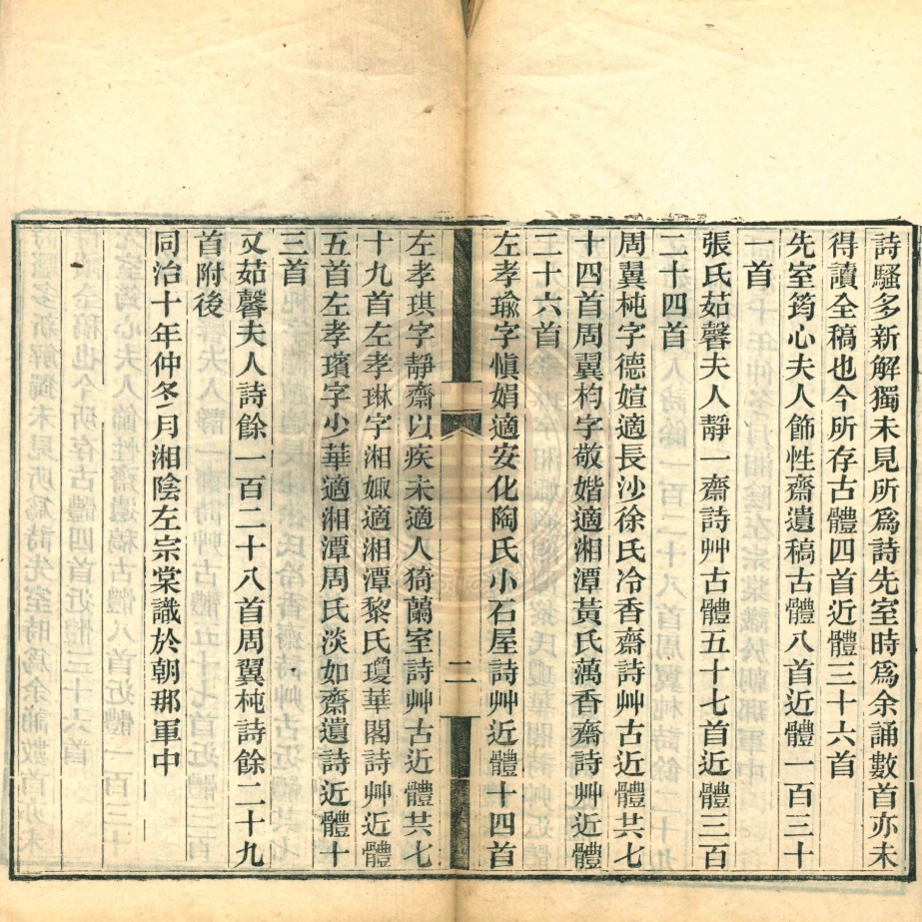 詩騷多新解獨未見所爲詩先室時爲余誦數首亦未
得讀全稿也今所存古體四首近體三十六首
先室筠心夫人飾性齋遺稿古體八首近體一百三十
一首
張氏茹馨夫人靜一齋詩艸古體五十七首近體三百
二十四首
周翼杶字德媗適長沙徐氏冷香齋詩艸古近體共七
十四首周翼杓字敬媘適湘潭黃氏藕香齋詩艸近體
二十六首
左孝瑜字愼娟適安化陶氏小石屋詩艸近體十四首
二
左孝琪字靜齋以疾未適人猗蘭室詩艸古近體共七
十九首左孝琳字湘娵適湘潭黎氏瓊華閣詩艸近體
五首左孝璸字少華適湘潭周氏淡如齋遺詩近體十
三首
又茹馨夫人詩餘一百二十八首周翼杶詩餘二十九
首附後
同治十年仲冬月湘陰左宗棠識於朝𨙻軍中